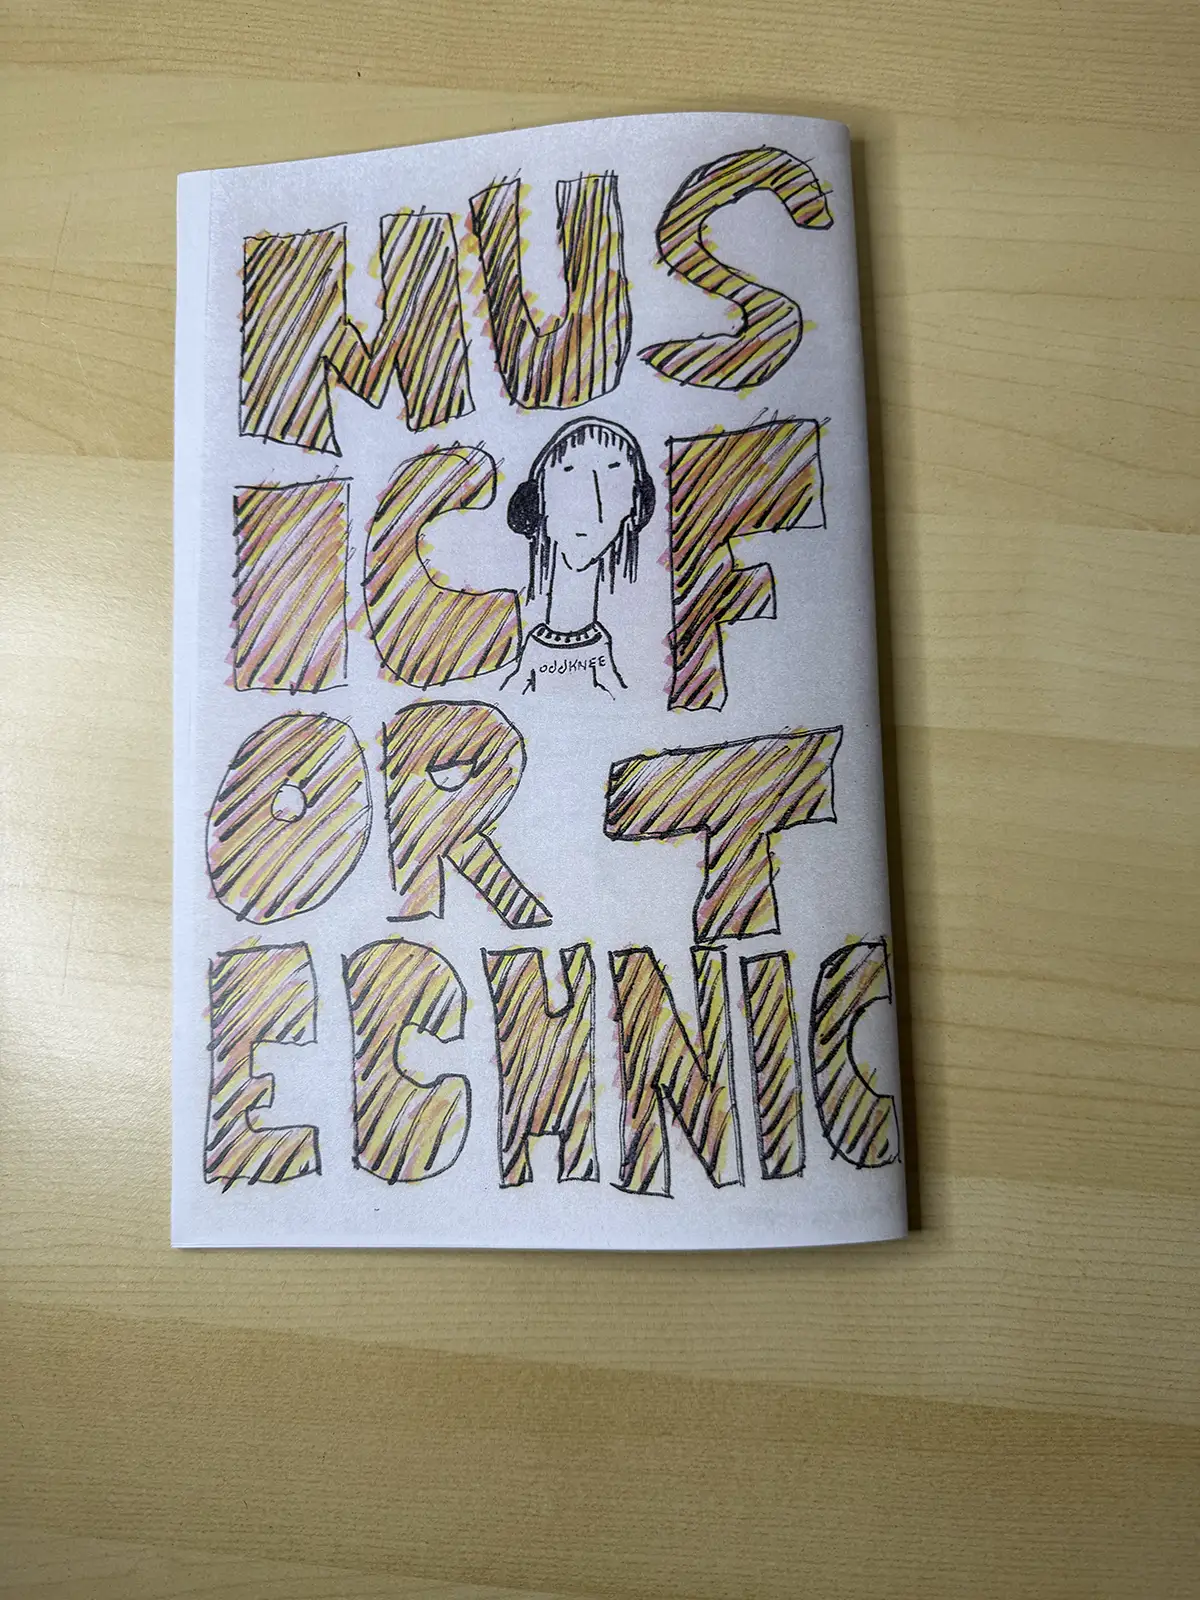 MUS
IC F
oddKNEE
OR T
ECHNIC